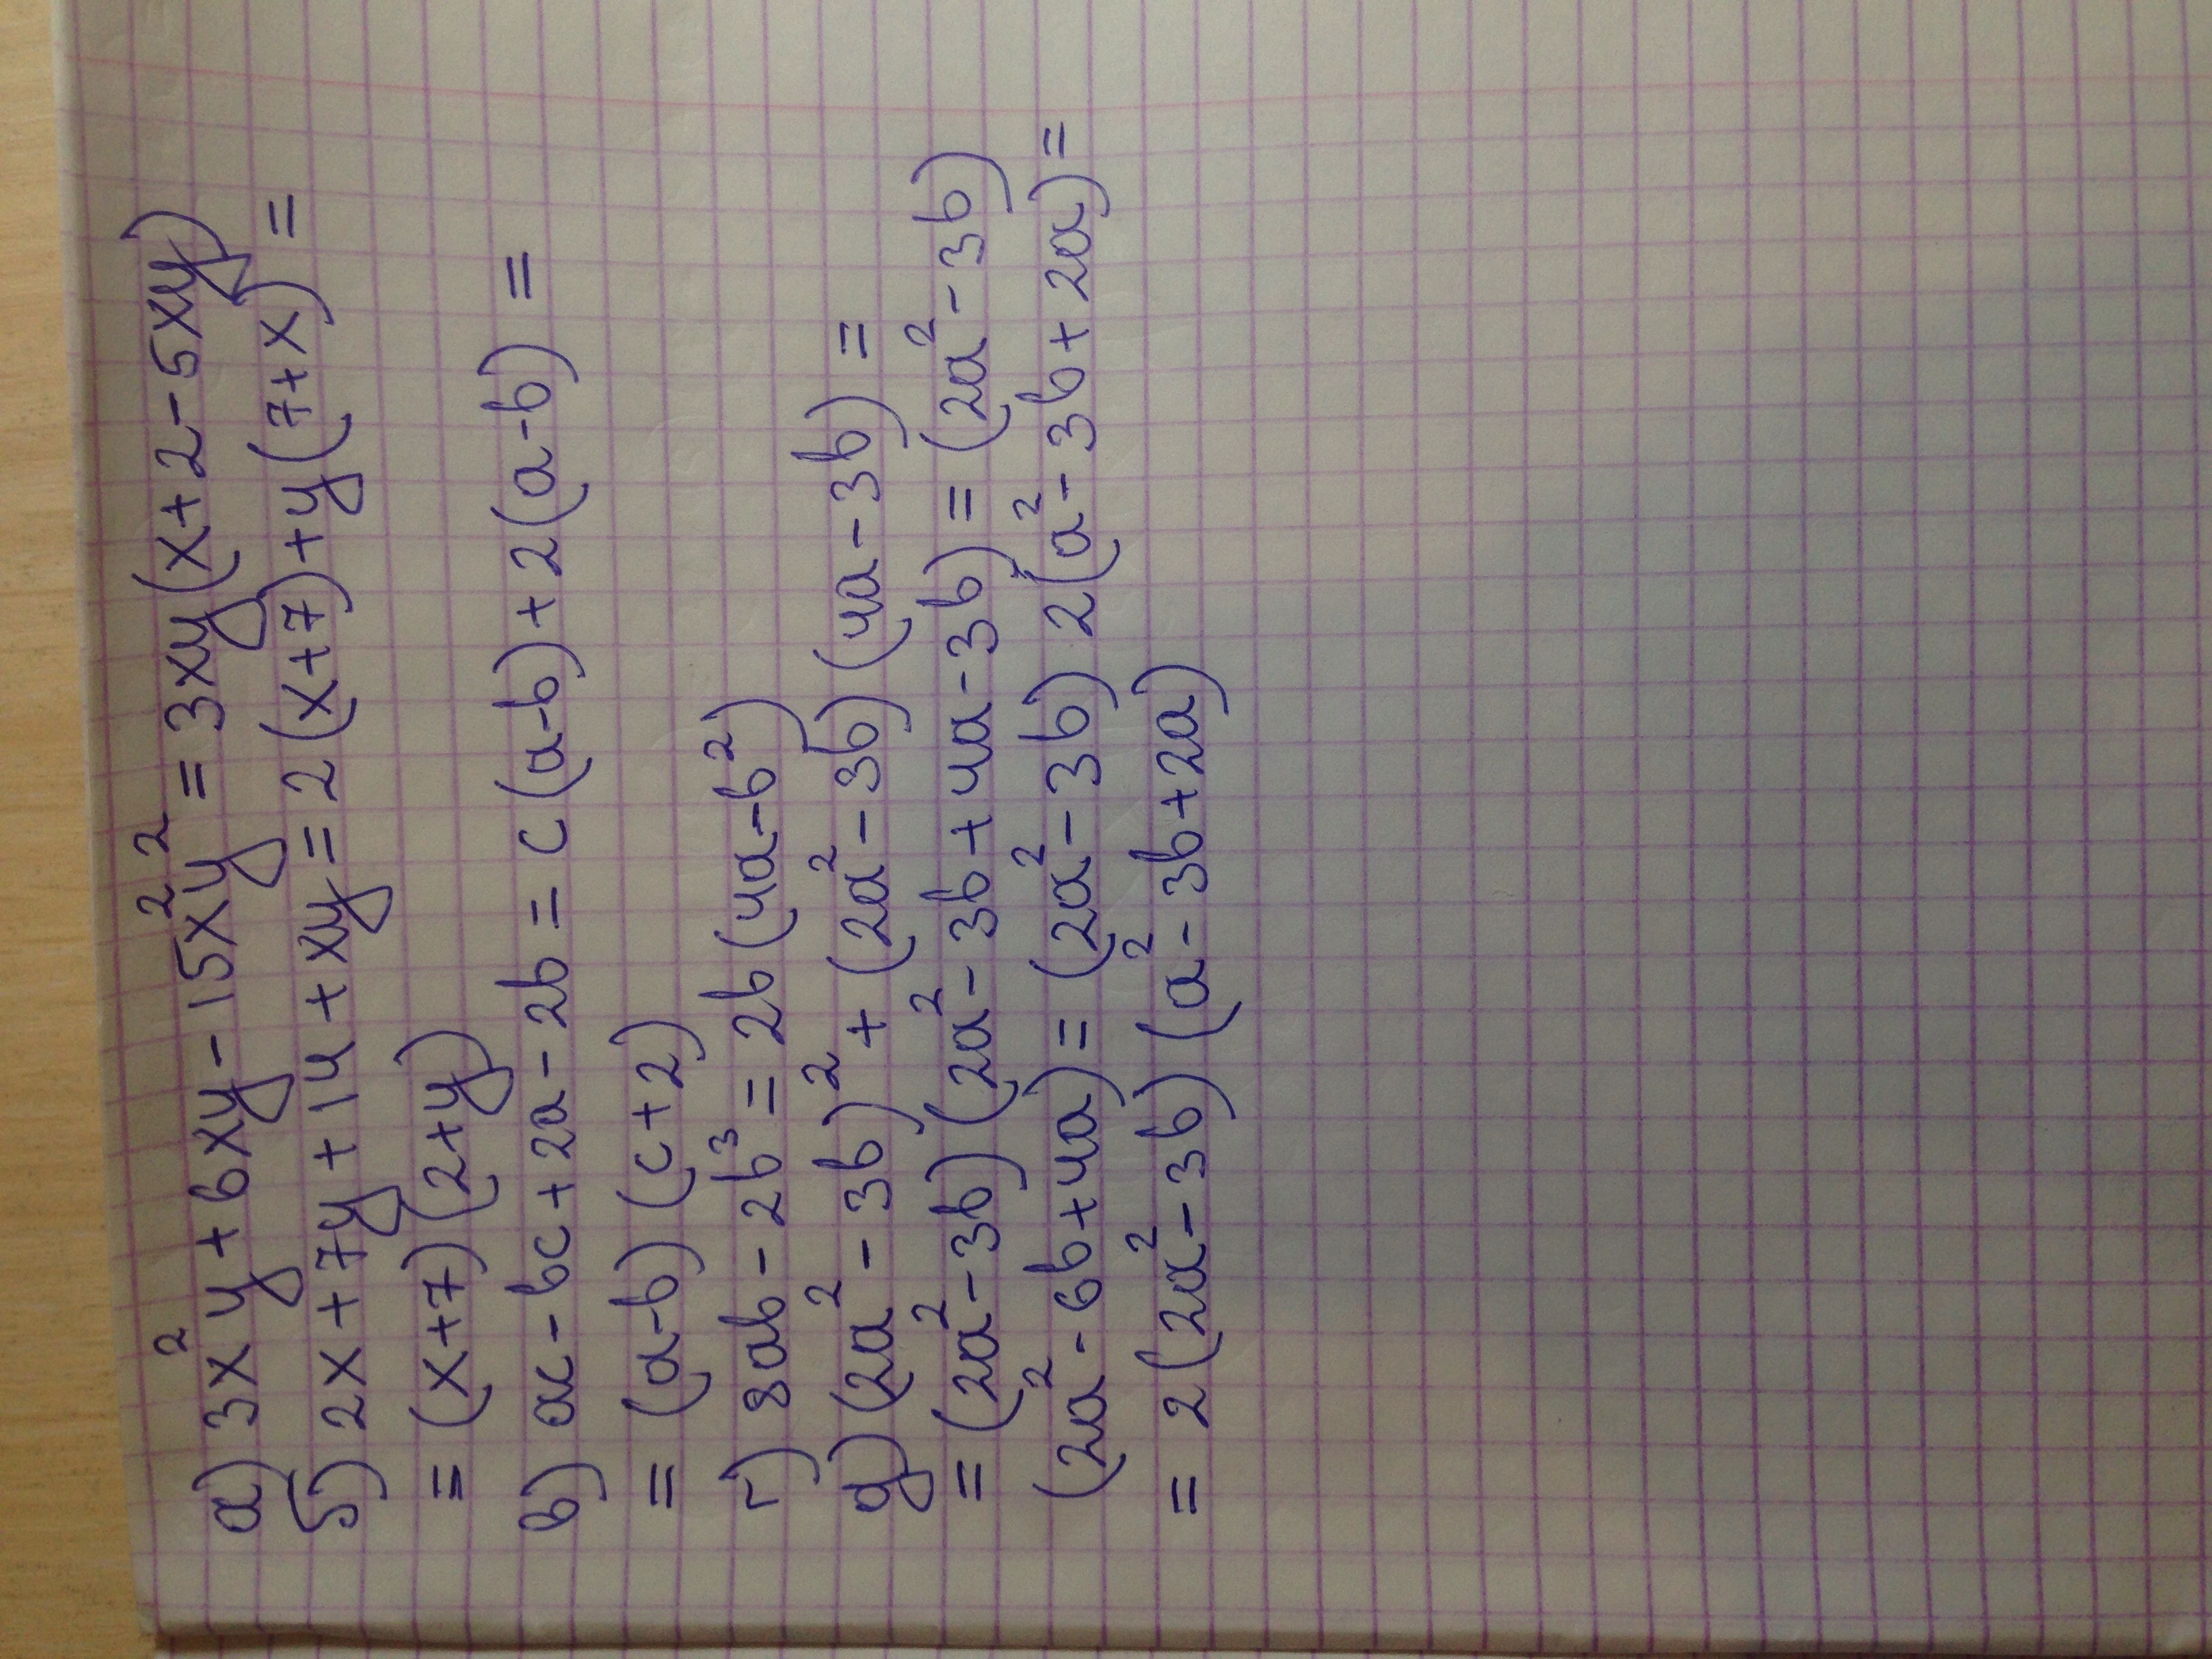 а) 3x²y + 6xy - 15x²y² = 3xy(x+2-5xy)
б) 2x + 7y + 14 + xy = 2(x+7) + y(7+x) =
= (x+7)(2+y)
в) ac - bc + 2a - 2b = c(a-b) + 2(a-b) =
= (a-b)(c+2)
г) 8ab - 2b³ = 2b(4a-b²)
д) (2a² - 3b)² + (2a² - 3b)(4a - 3b) =
= (2a² - 3b)(2a² - 3b + 4a - 3b) = (2a² - 3b)
(2a² - 6b + 4a) = (2a² - 3b) 2(a² - 3b + 2a) =
= 2(2a² - 3b)(a² - 3b + 2a)